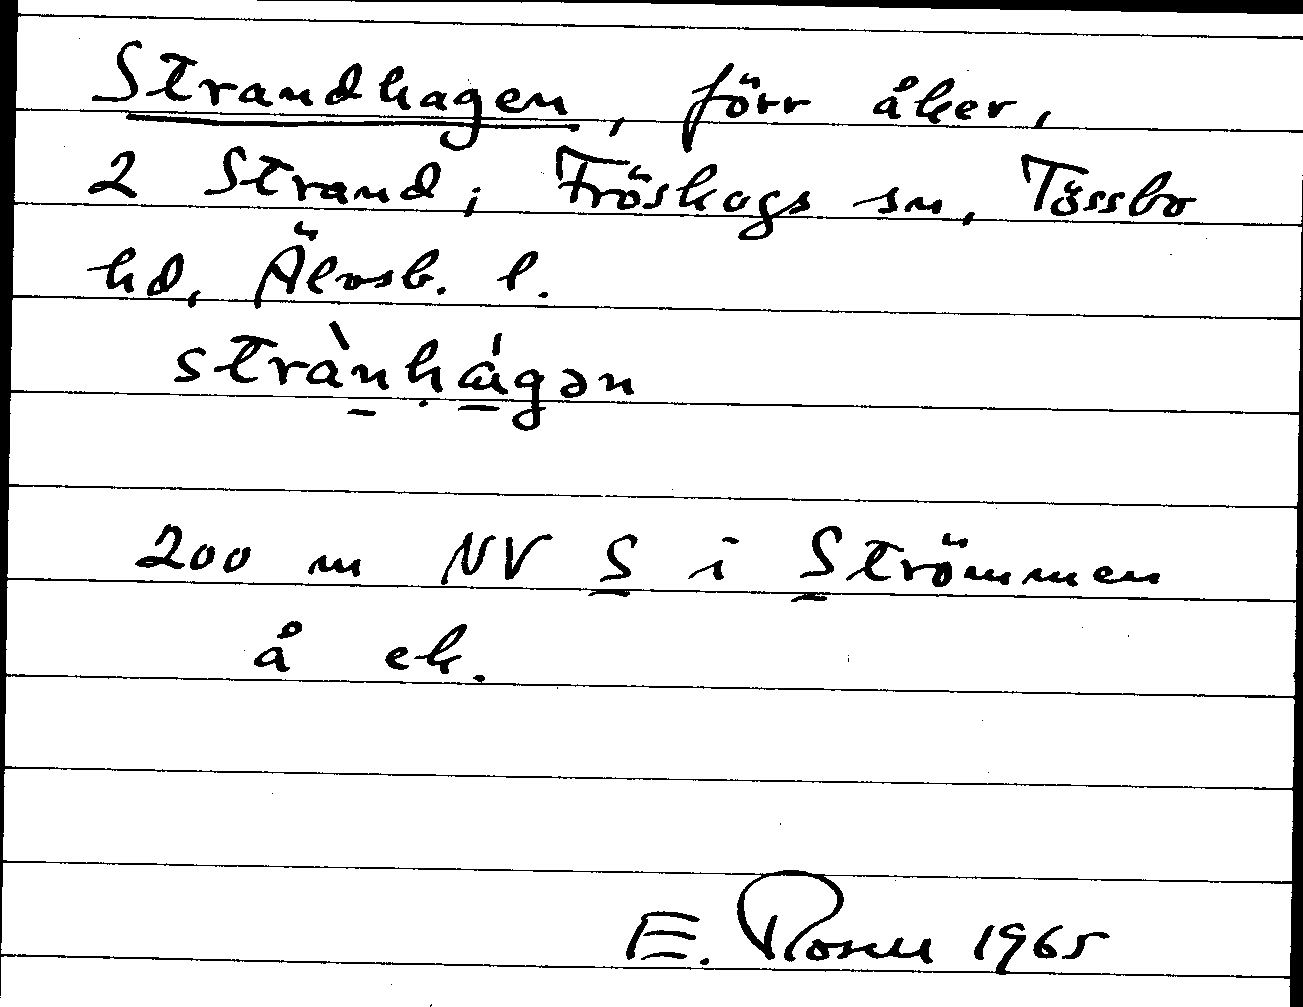 Strandhagen, förr åker,
2 Strand, Fröskogs sn, Tössbo
hd, Älvsb. l.
strànhágən
200 m NV S i Strömmen
å ek.
E. Rosell 1965